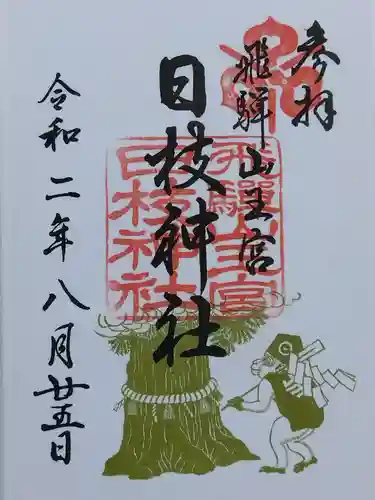 参拝
飛騨山王宮
日枝神社
令和二年八月廿五日
飛騨山王宮
日枝神社